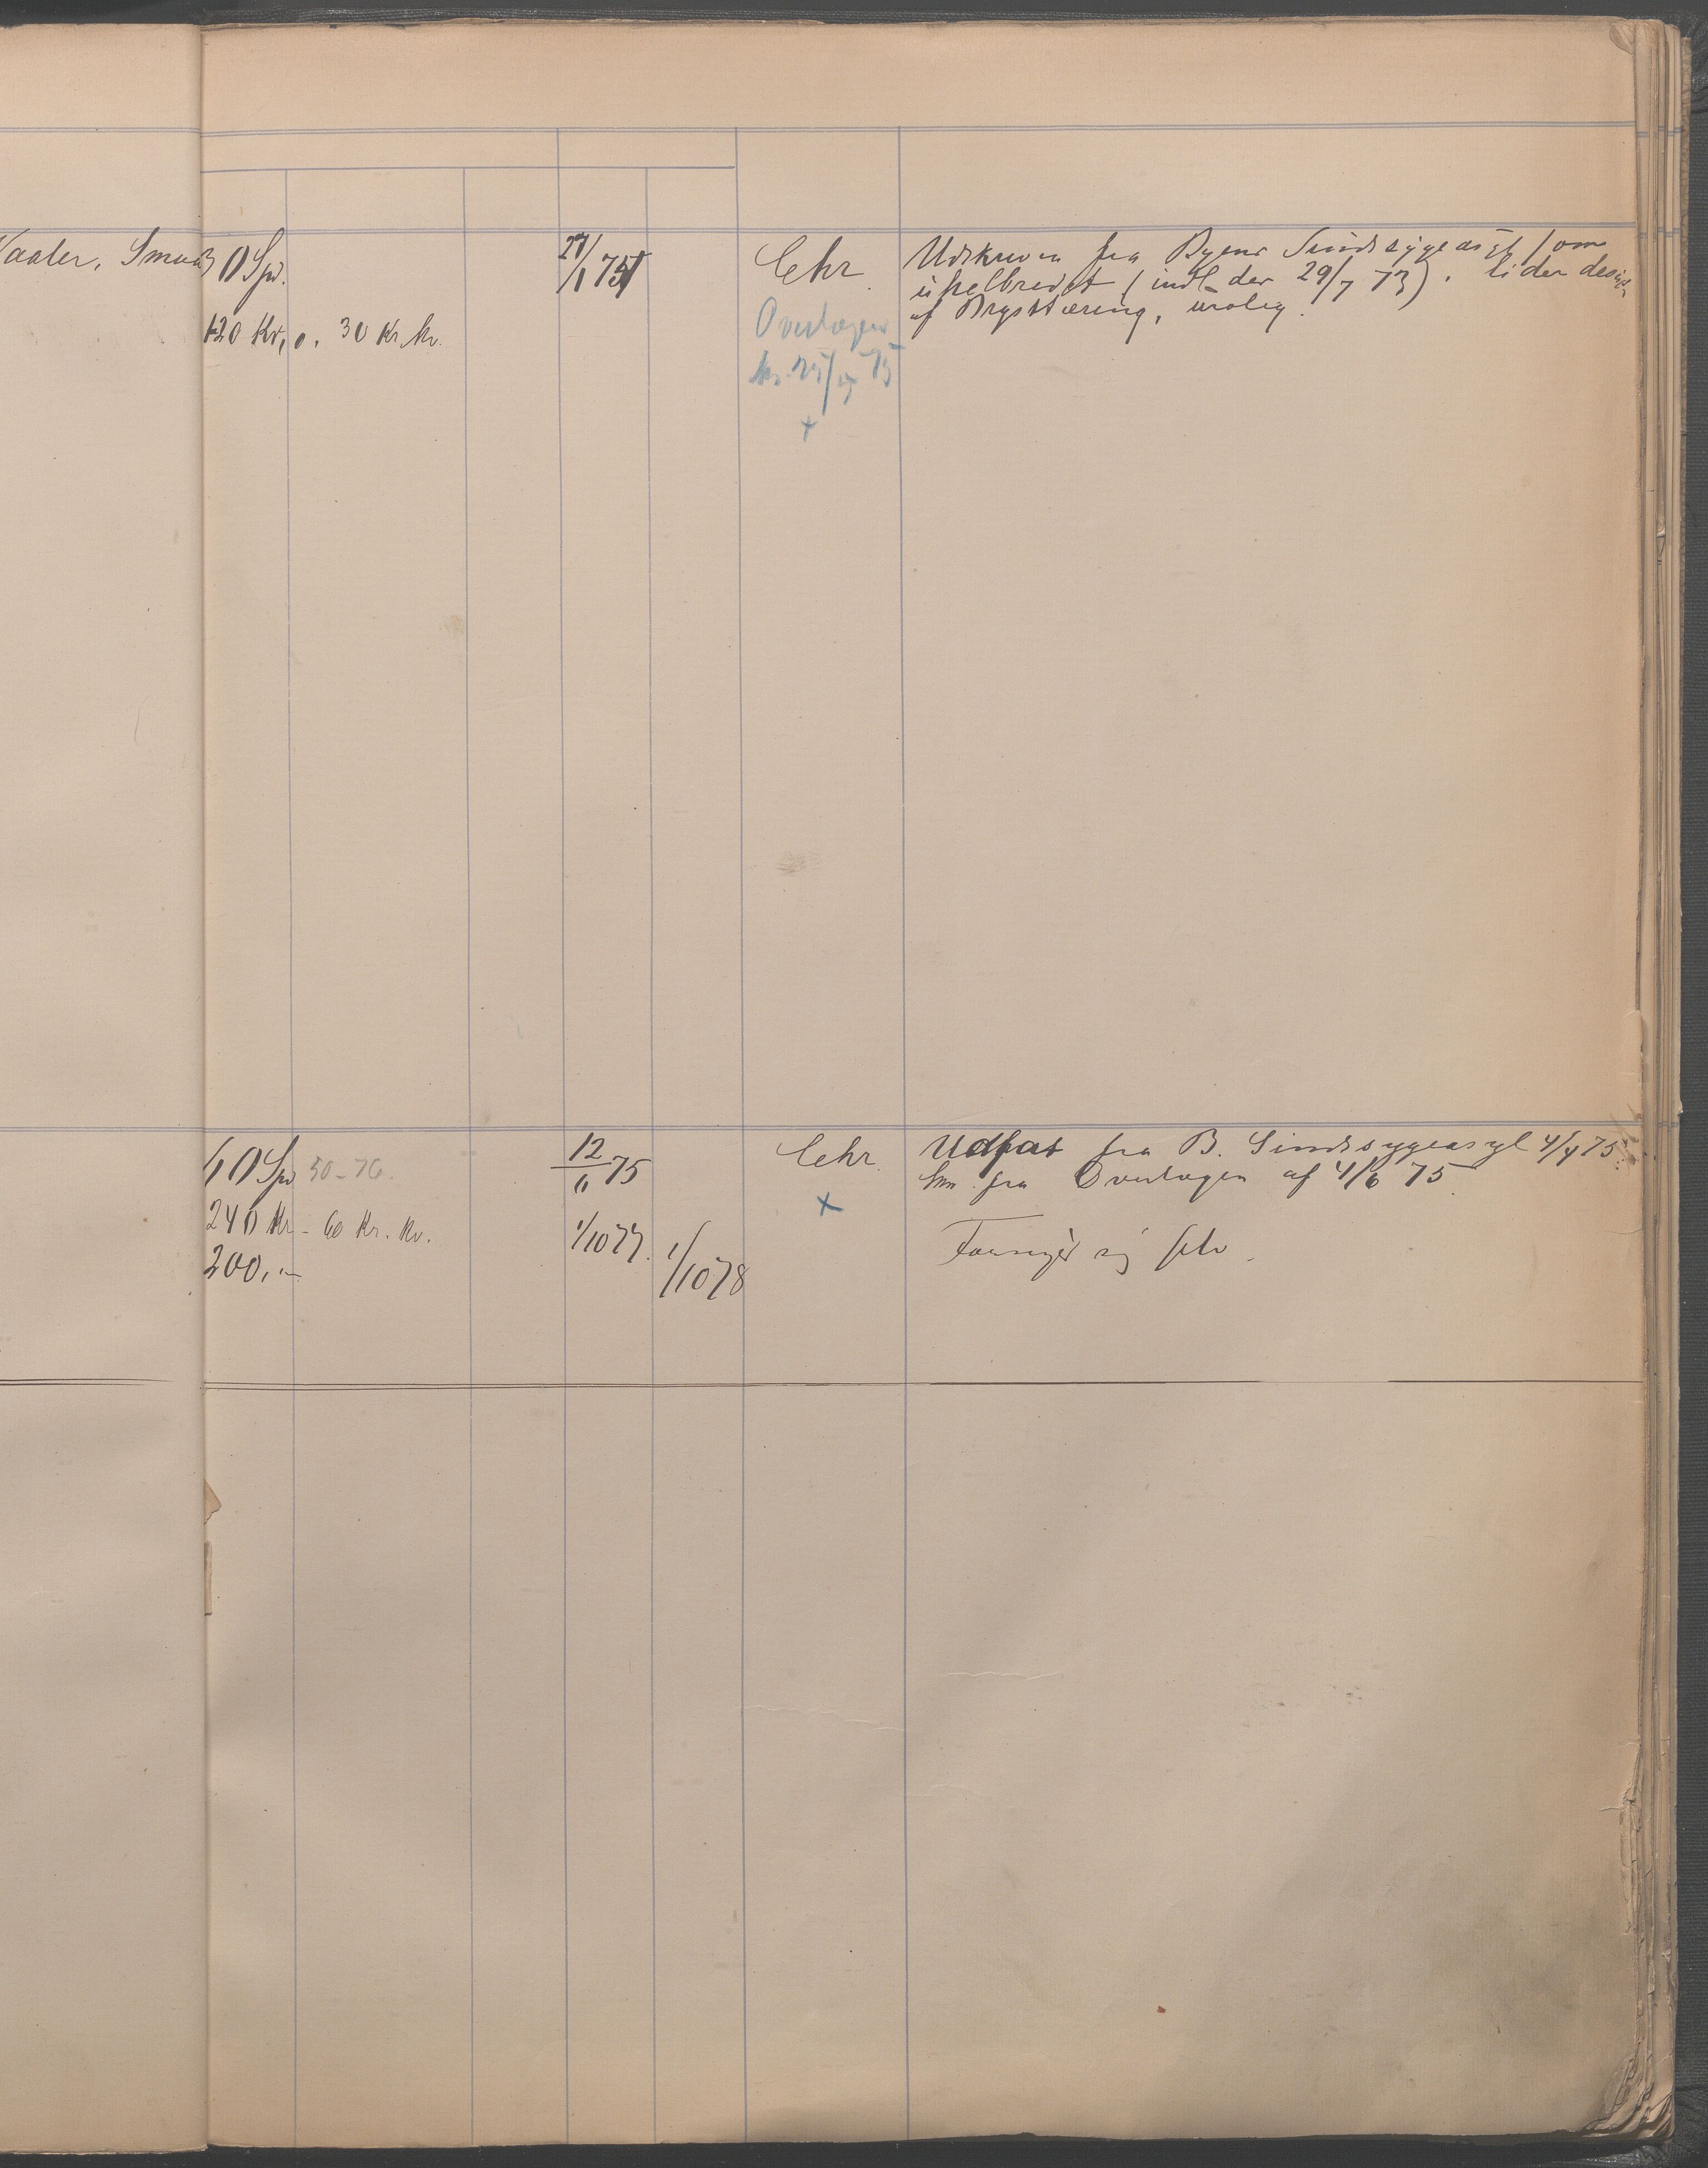 Vaaler, Smaa
30 Spd.
120 Kr, o. 30 Kr. kv.
27/1 75
Lehr.
Overlægen
75
+
Udskreven fra Byens Sindssygeasyl som
uhelbredet (indl. der 29/7 73). lider desuden
af Brysttæring, urolig.
60 Spd 50-76.
240 Kr - 60 Kr. kv.
200,-
12/6 75
1/10 77.
1/10 78
Lehr.
x
Udsat fra B. Sindssygeasyl 4/4 75
fra Overlægen af 4/6 75
sig selv.